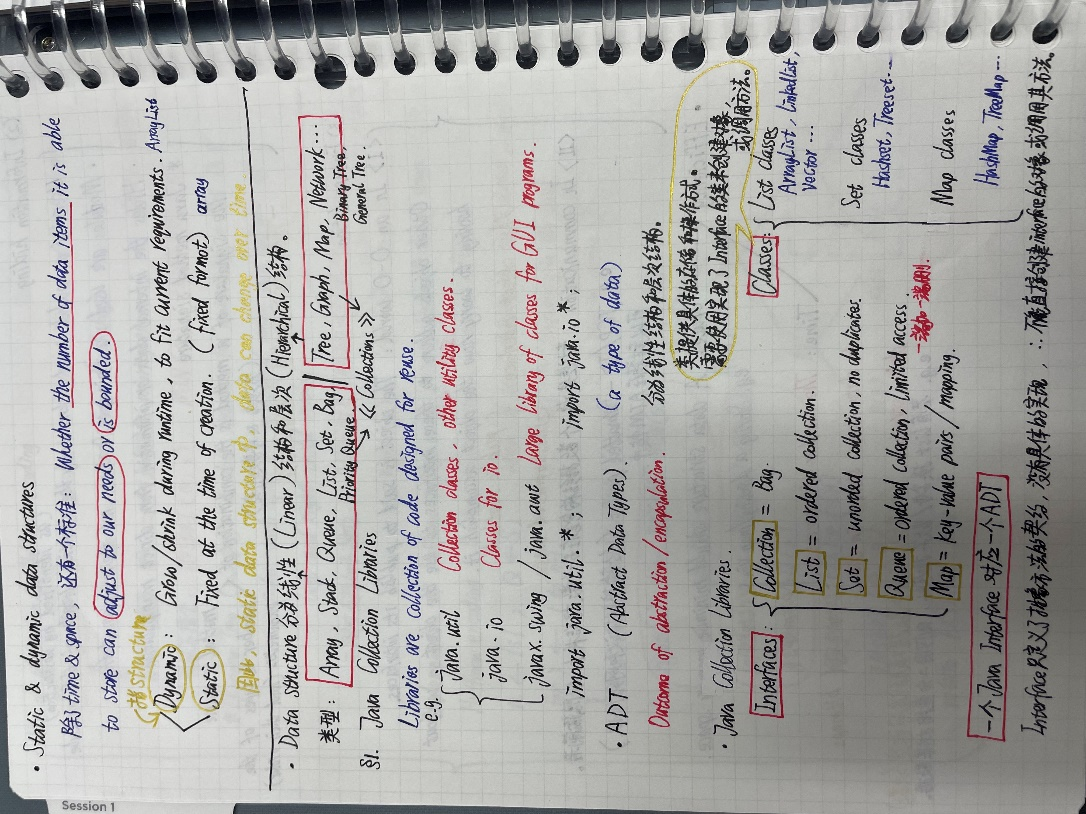 Session 1
• Static & dynamic data structures
除了time & space, 还有一个标准: Whether the number of data items it is able
to store can adjust to our needs or is bounded.
指structure
Dynamic: Grow/shrink during runtime, to fit current requirements. ArrayList
Static: Fixed at the time of creation. (fixed format) array
因此, static data structure 中, data can change over time
• Data structure 分为线性 (Linear) 结构和层次 (Hierarchical) 结构。
类型: Array, Stack, Queue, List, Set, Bag Tree, Graph, Map, Network...
Priority Queue Binary Tree,
General Tree.
§1. Java Collection Libraries << Collections >>
Libraries are collection of code designed for reuse.
e.g.
java.util Collection classes, other utility classes.
java.io Classes for io.
javax.swing / java.awt Large library of classes for GUI programs.
import java.util.*; import java.io*;
• ADT (Abstract Data Types). (a type of data)
Outcome of abstraction/encapsulation. 分为线性结构和层次结构。
• Java Collection Libraries.
类提供具体的存储和操作方式。
需要使用实现了Interface的类来创建对象,
或调用方法。
Interfaces:
Collection = Bag
List = ordered collection.
Set = unorded collection, no duplicates
Queue = ordered collection, limited access.
一端加一端删.
Map = key-value pairs / mapping.
Classes:
List classes
ArrayList, LinkedList,
Vector...
Set classes
Hashset, Treeset...
Map classes
HashMap, TreeMap...
一个Java Interface 对应一个ADT
Interface只定义了抽象方法的契约, 没有具体的实现, ∴不能直接创建Interface的对象或调用其方法。